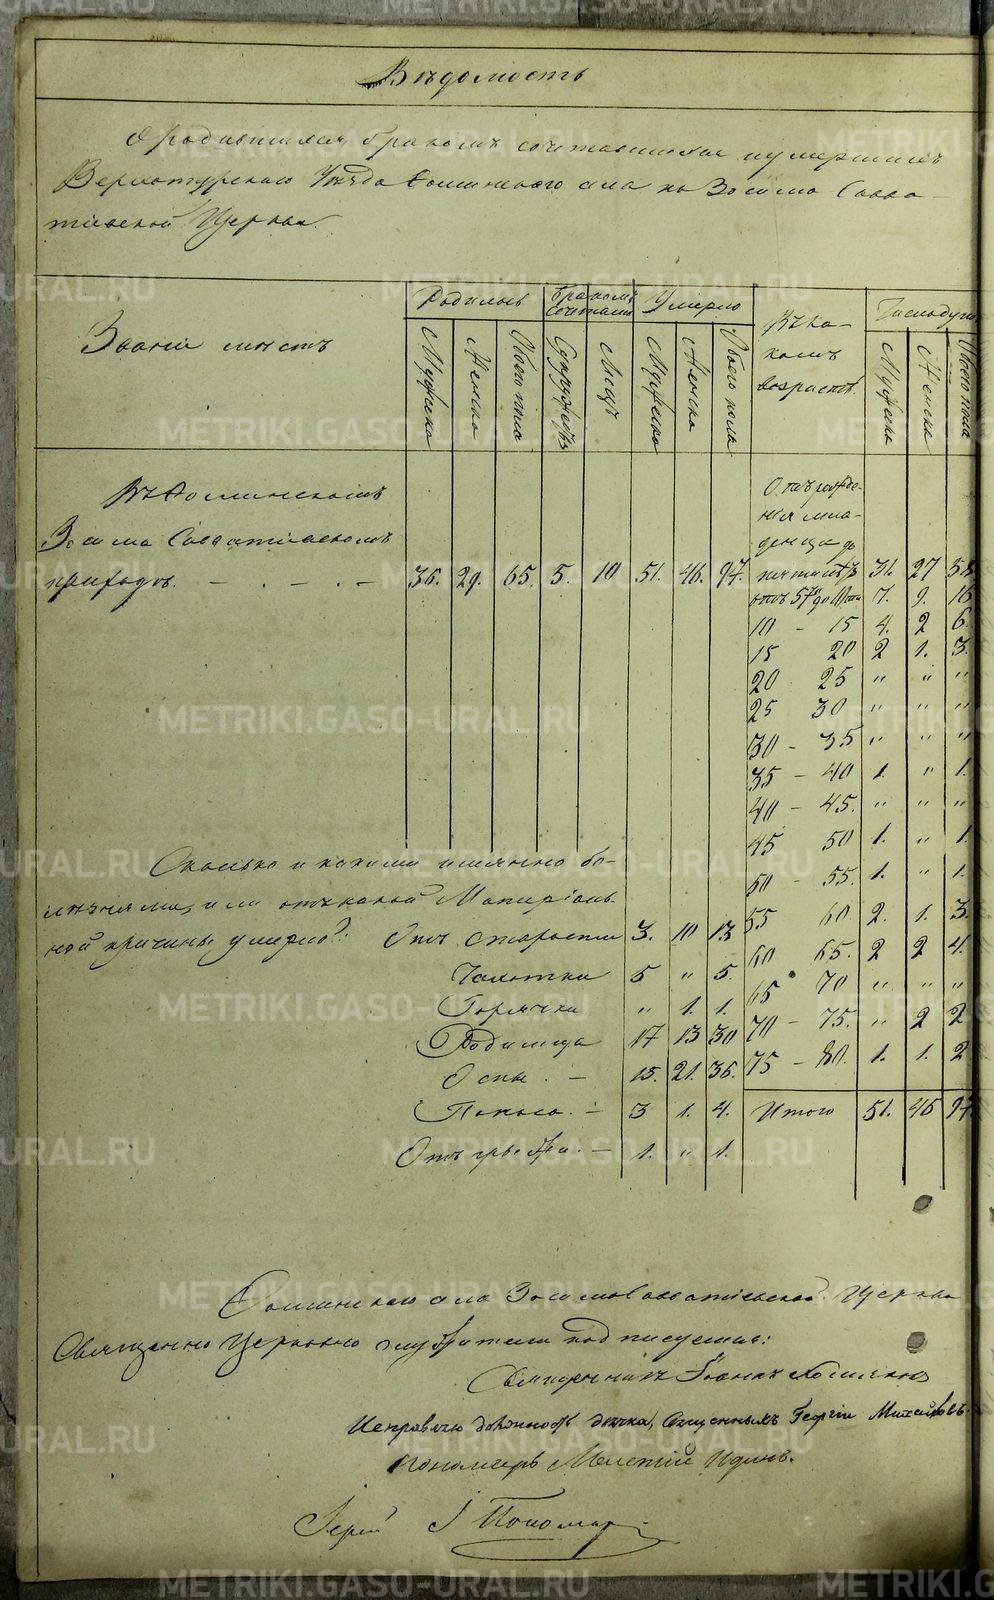 Вѣдомость
О родившихся, бракомъ сочетавшихся и умершихъ
Верхотурскаго Уѣзда Фоминскаго села по Зосимо Савва-
тіевской Церкви.
Званіе мѣстъ
Родилось
Бракомъ сочетались
Умерло
Въ ка-
комъ
возрастѣ.
Число душъ
Мужеска
Женска
Обоего пола
Супружествъ
Лицъ
Мужеска
Женска
Обоего пола
Мужеска
Женска
Обоего пола
Въ Фоминскомъ
Зосимо Савватіевскомъ
приходѣ. 36. 29. 65. 5. 10 51. 46. 97.
Отъ рожде-
нія мла-
денца до
пяти лѣтъ 31. 27 58
отъ 5ти до 10ти 7. 9. 16
10 - 15 4. 2 6.
15 20 2 1. 3.
20 25 " " "
25 30 " " "
30 - 35 " " "
35 - 40 1. " 1.
40 - 45. " " "
45 50 1. " 1.
50 - 55. 1. " 1.
55 60 2. 1. 3.
60 65. 2 2 4.
65 70 " " "
70 - 75. " 2 2
75 - 80. 1. 1. 2
Итого 51. 46 97
Сколько и какими именно бо-
лѣзнями, или отъ какой Матеріаль-
ной причины умерло?: Отъ старости 3. 10 13
Чахотки 5 " 5.
Горячки " 1. 1.
Родимца 17 13 30
Оспы. - 15. 21. 36.
Поноса. - 3 1. 4.
Отъ грыжи. - 1. " 1.
Фоминскаго села Зосимо Савватіевской Церкви
Священно Церковно служители подписуемся:
Священникъ Іоаннъ
Исправляю должность дьячка, Священникъ Георгій Михайловъ
Пономарь Мелетій
Іерей І Пономар
METRIKI.GASO-URAL.RU